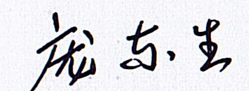 庞东生